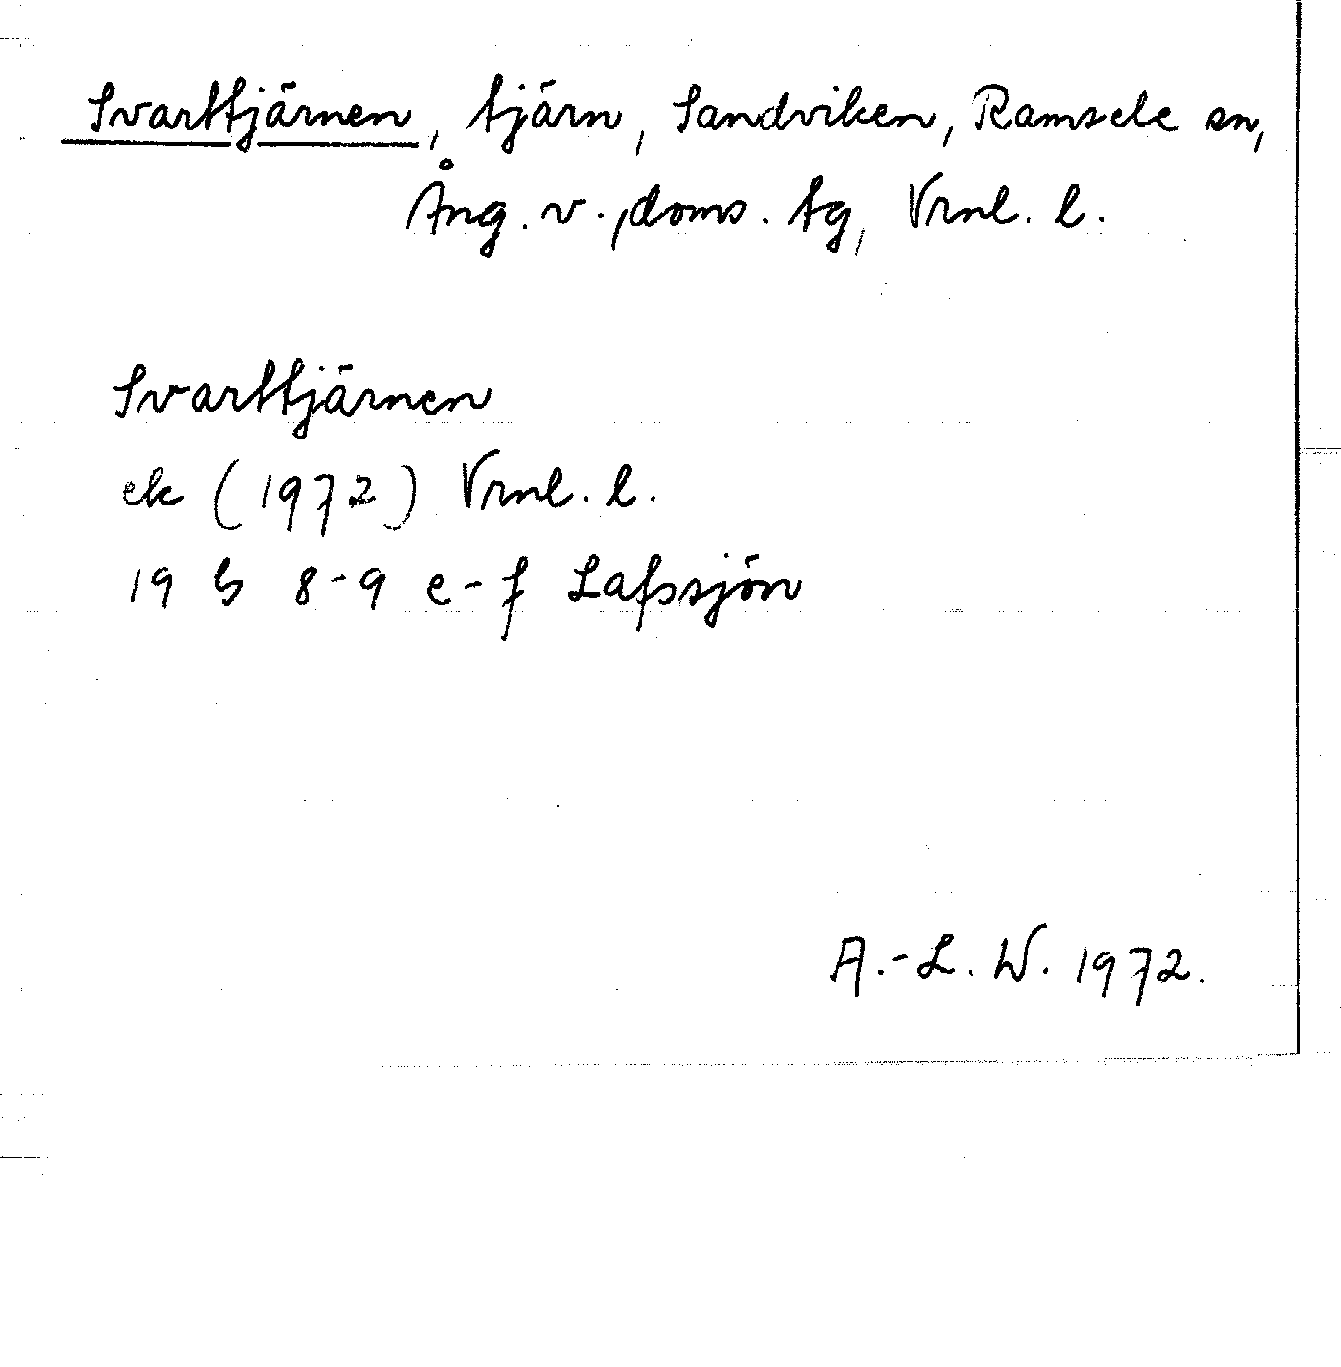 Svarttjärnen, tjärn, Sandviken, Ramsele sn,
Ång. v., doms. tg, Vrnl. l.
Svarttjärnen
ek (1972) Vrnl. l.
19 G 8-9 e-f Lafssjön
A.-L. W. 1972.